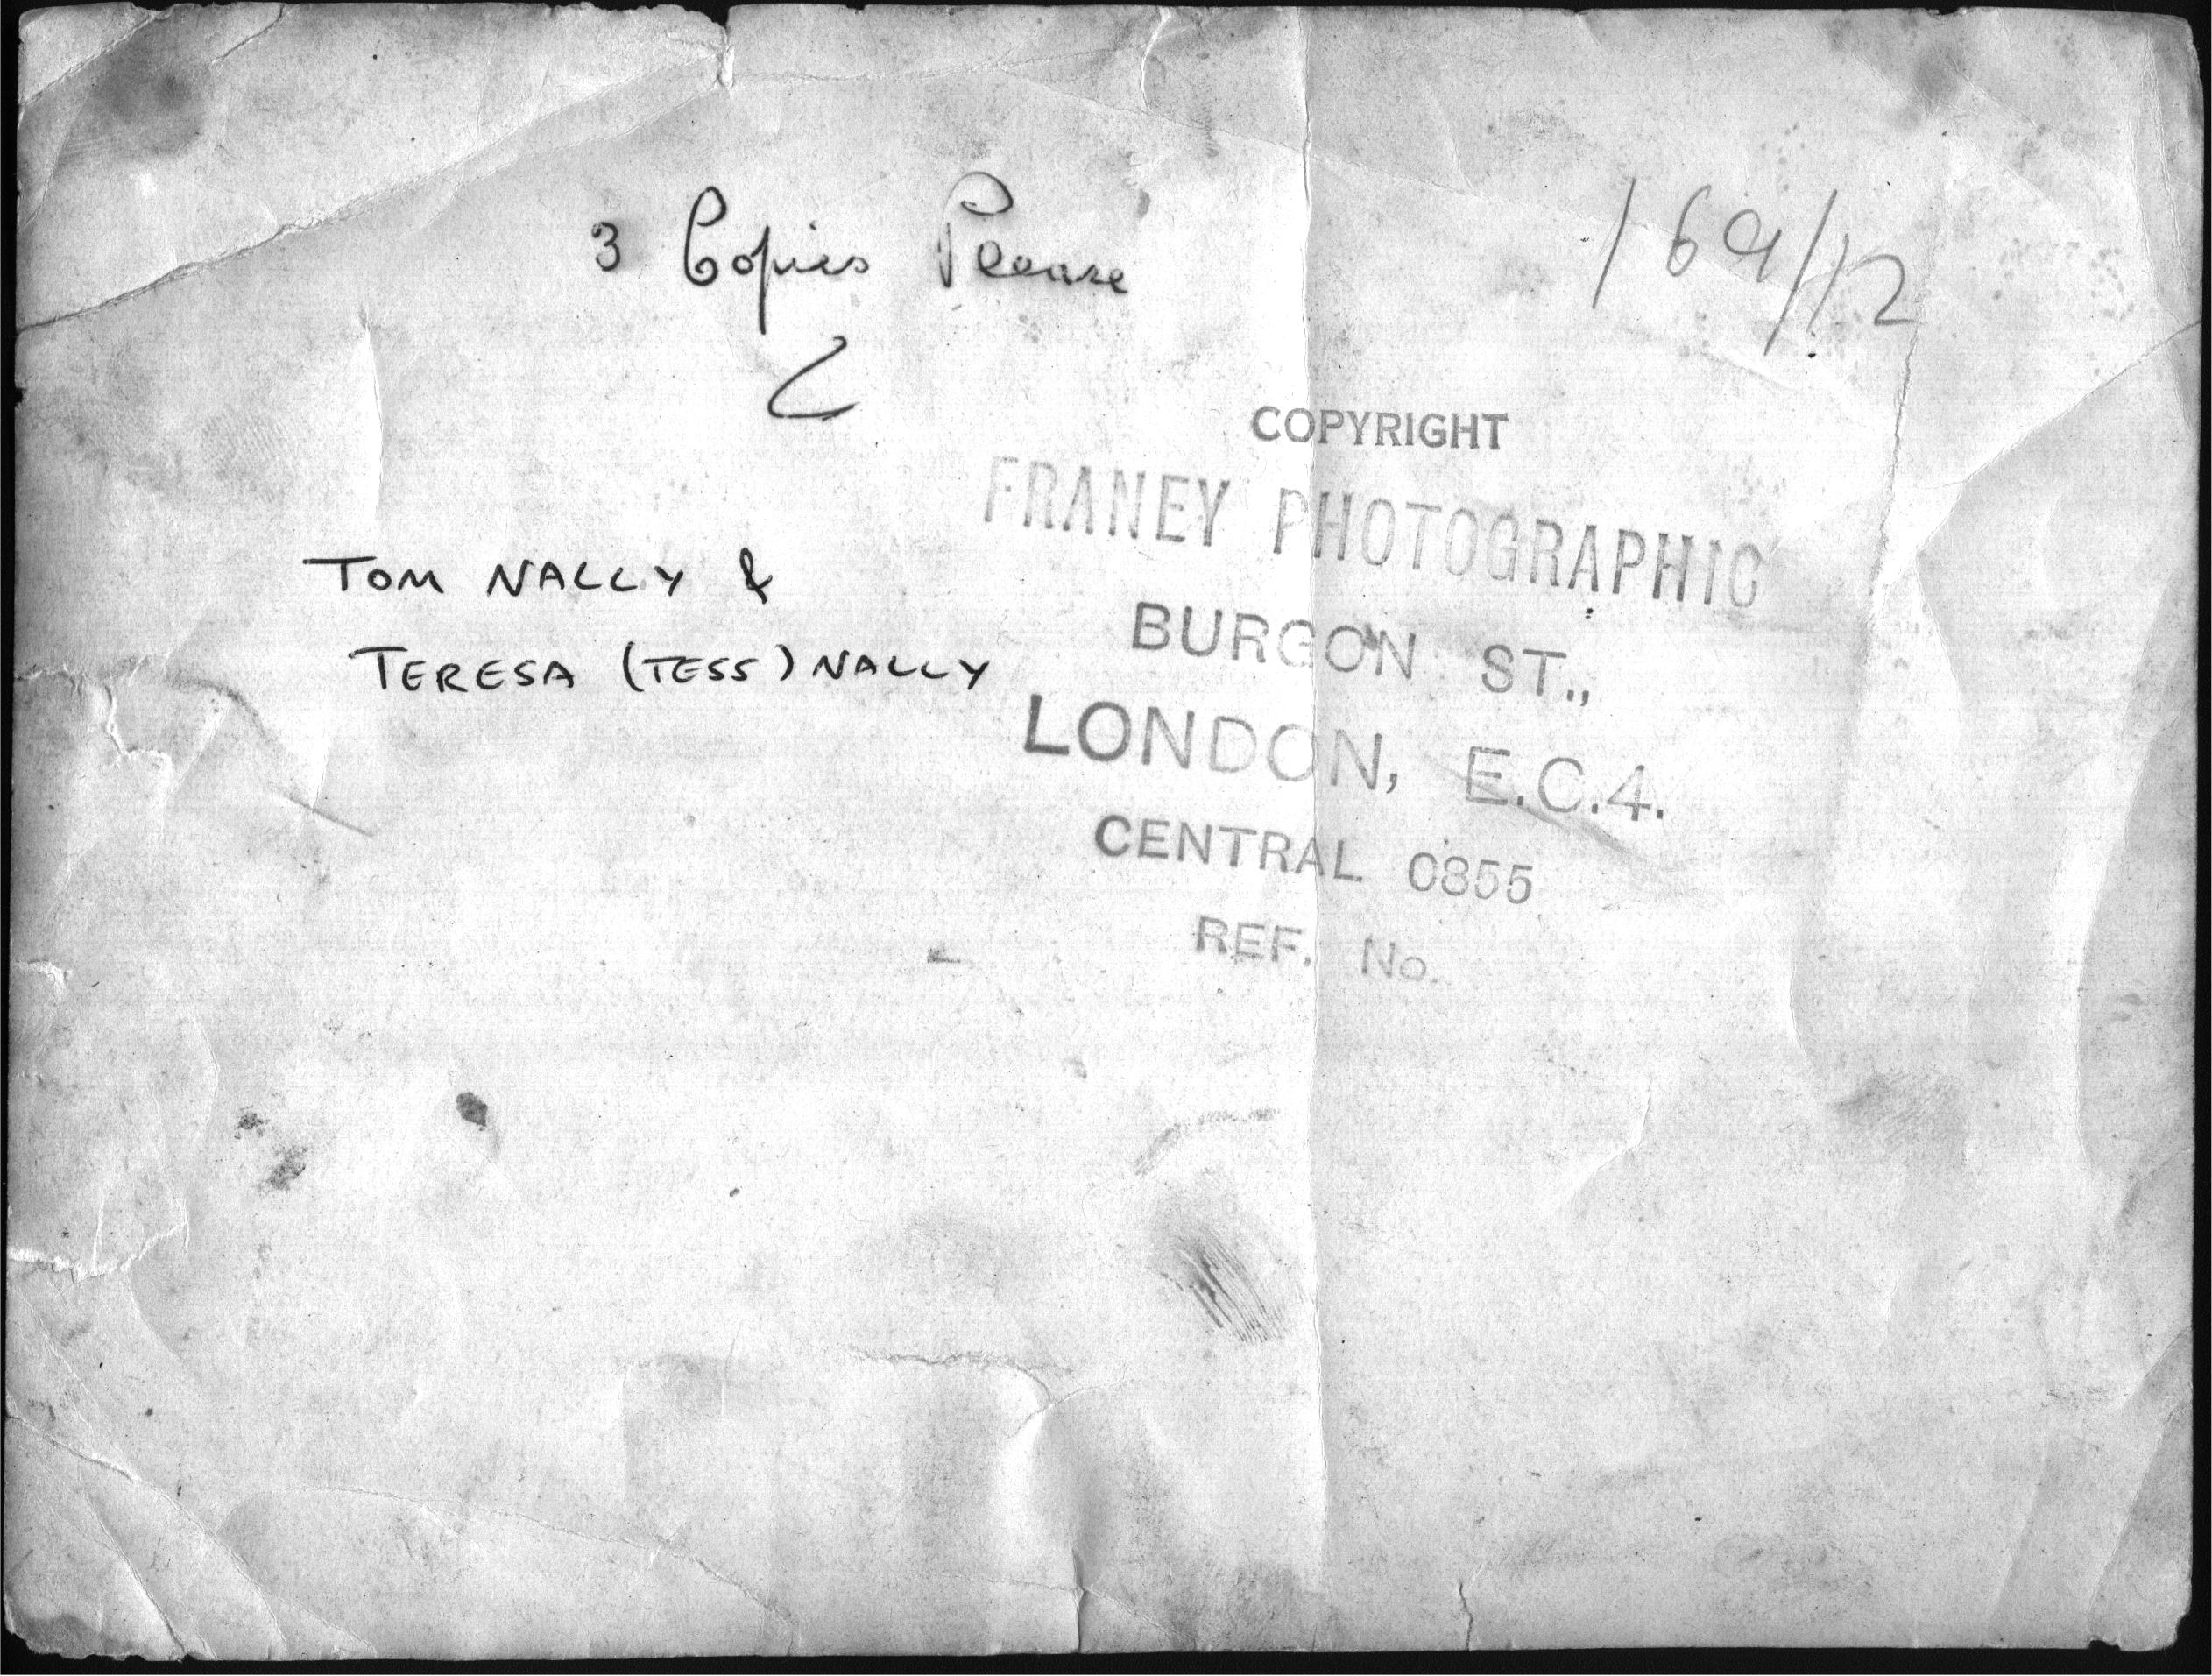 3 Copies Please
169/12
COPYRIGHT
FRANEY PHOTOGRAPHIC
BURGON ST.,
LONDON, E.C.4.
CENTRAL 0855
REF. No.
TOM NALLY &
TERESA (TESS) NALLY